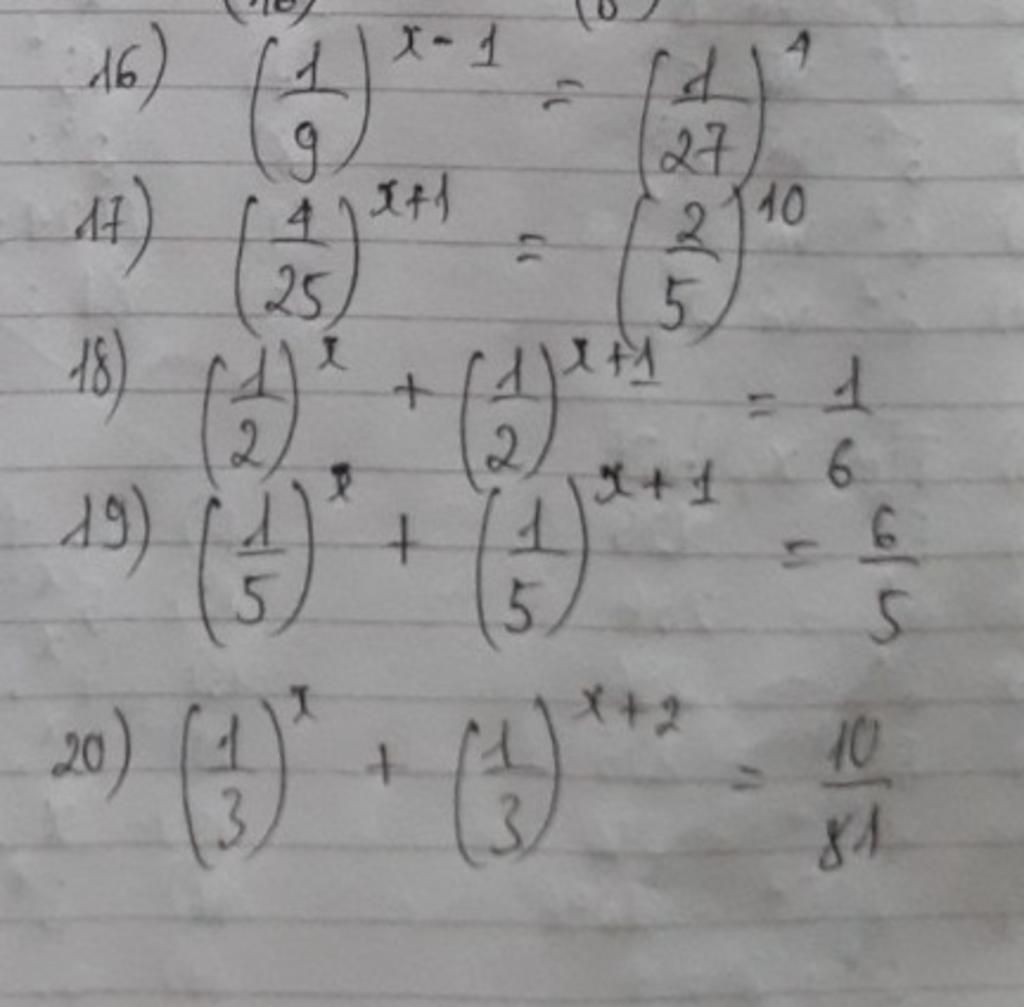 16) (1/9)^(x-1) = (1/27)^4
17) (4/25)^(x+1) = (2/5)^10
18) (1/2)^x + (1/2)^(x+1) = 1/6
19) (1/5)^x + (1/5)^(x+1) = 6/5
20) (1/3)^x + (1/3)^(x+2) = 10/81